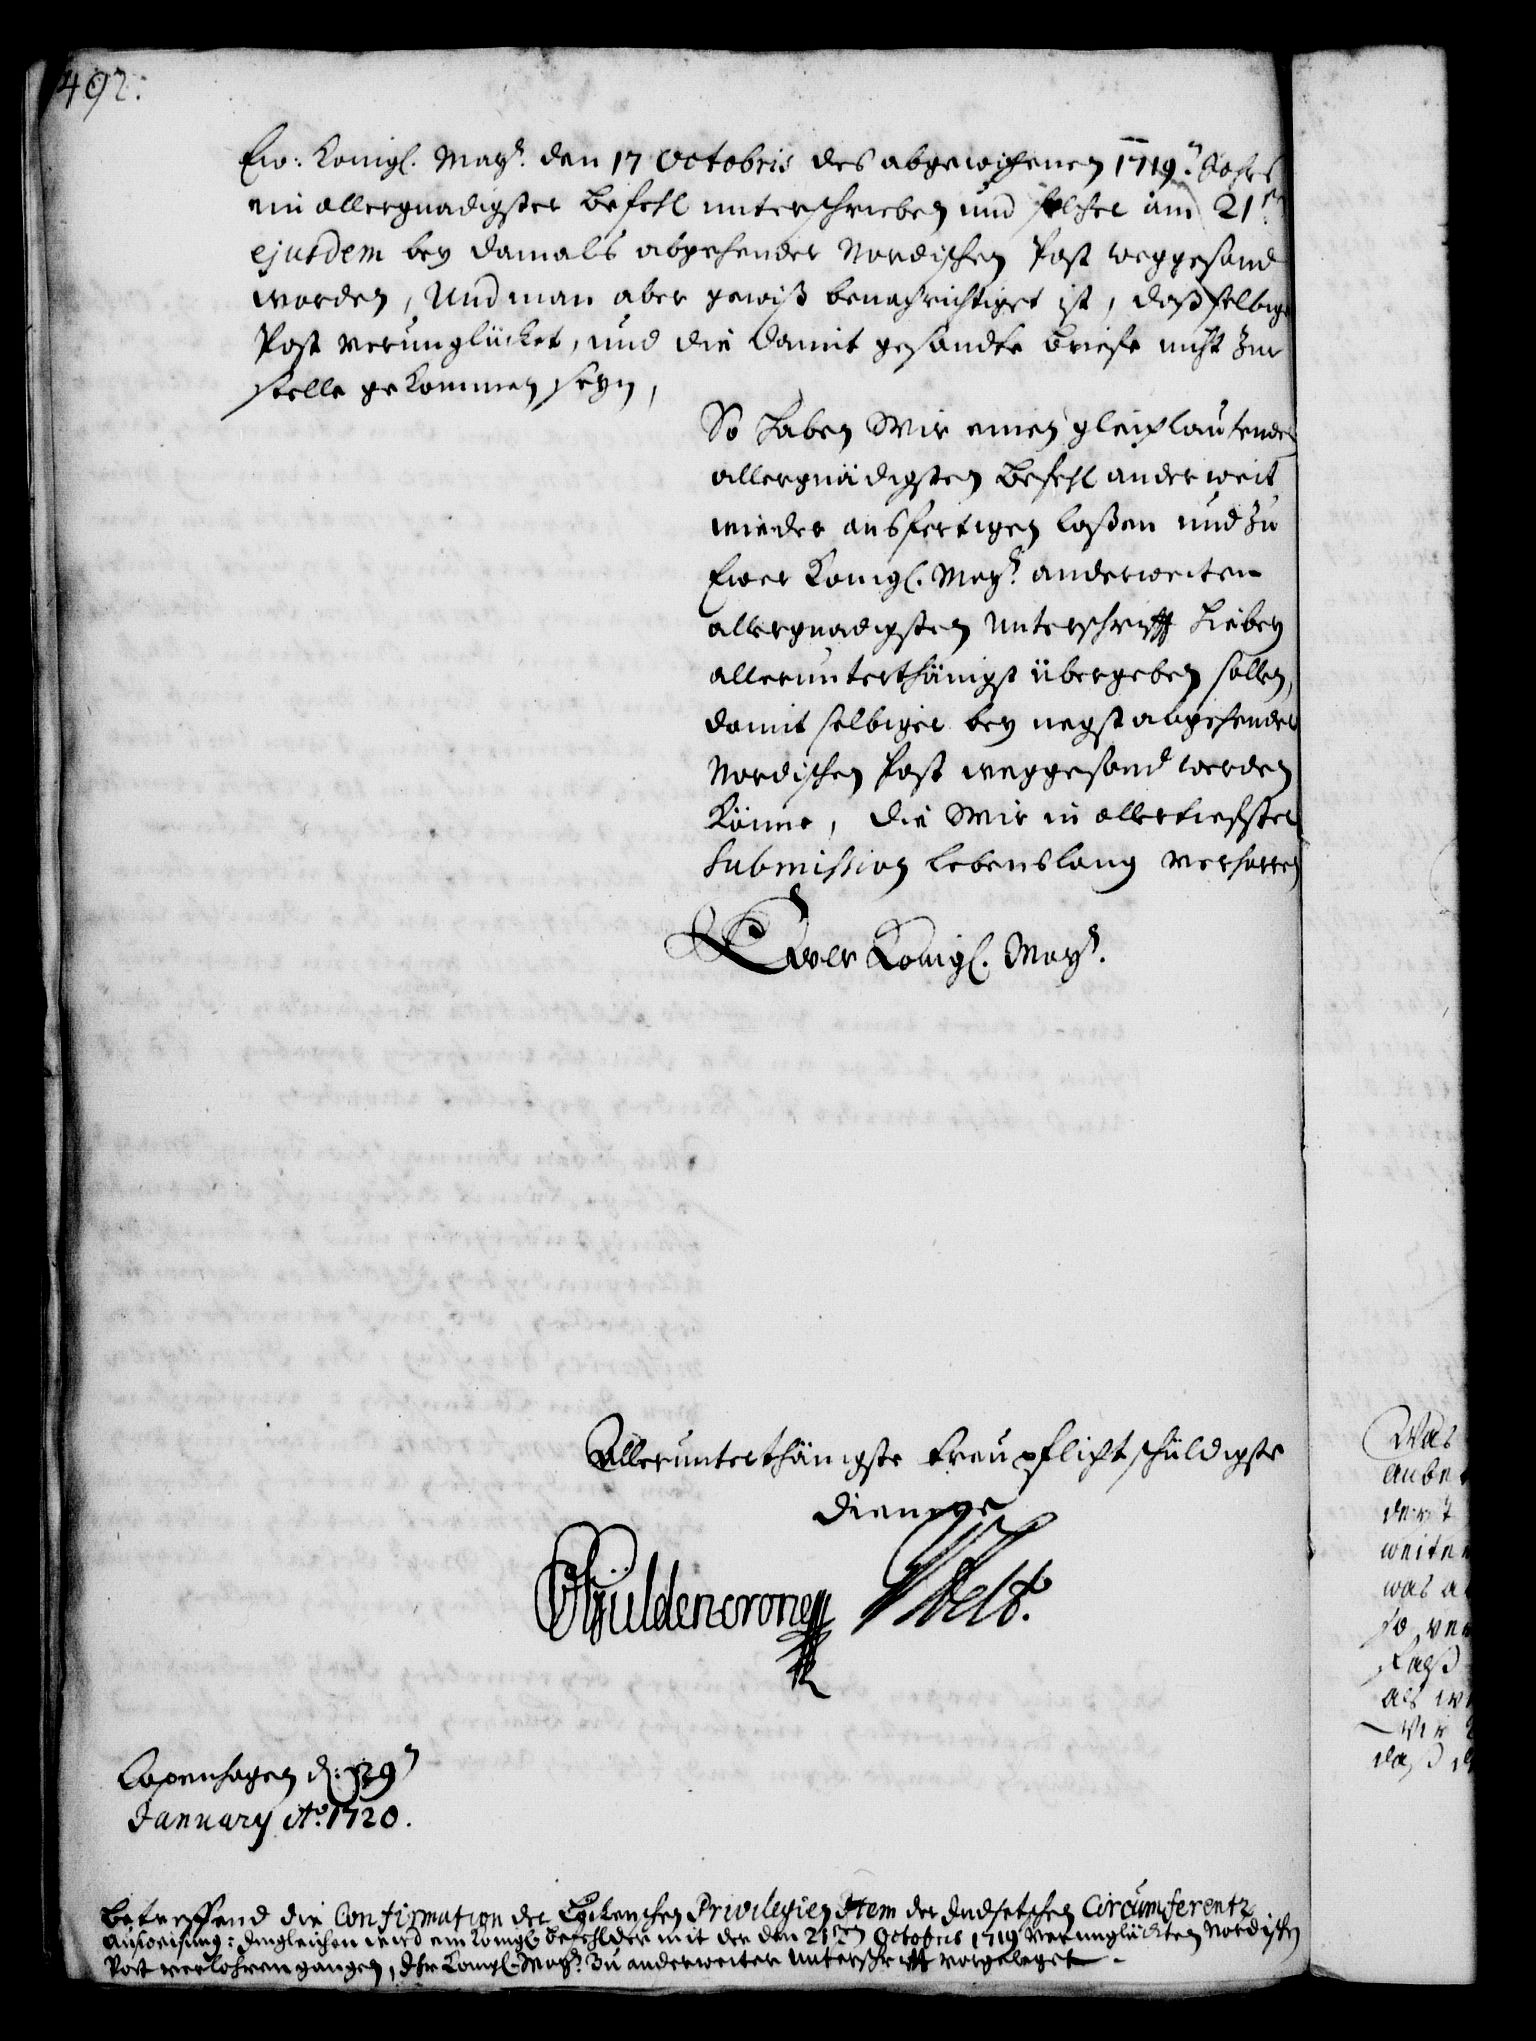 492.
Ew: Königl. May.t den 17 Octobris des abgewichenen 1719.n Jahrs
ein allergnädigster befehl unterschrieben und solcher am 21.t
ejusdem bey damals abgehender Nordischen Post weggesand
worden, Und man aber gewiß benachrichtiget ist, daß selbige
Post verunglücket, und die damit gesandte briefe nicht zur
stelle gekommen seyn,
So haben Wir einen gleichlautenden
allergnädigsten befehl anderweit
wieder ausfertigen laßen und zu
Ewer Königl. May.t anderweiten
allergnädigsten Unterschrifft hiebey
allerunterthänigst übergeben sollen,
damit selbiger bey negst abgehender
Nordischen Post weggesand werden
könne, die Wir in allertieffster
Submission lebenslang verharren
Ewer Königl. May.t
Allerunterthänigste treu pflicht schüldigste
Dienere
Güldencrone
Copenhagen d: 29.n
January Ao. 1720.
betreffend die Confirmation der Privilegien Item der Circumferentz
Anweisung: Imgleichen wird ein Königl. befehl der mit der den 21ten Octobris 1719 verunglückten Nordischen
Post verlohren gangen, Ihr Königl. May.t zu anderweiter Unterschrifft vorgeleget.
Was
anbe
dert
weiter
was a
so ver
daß
als w
Wir
daß d